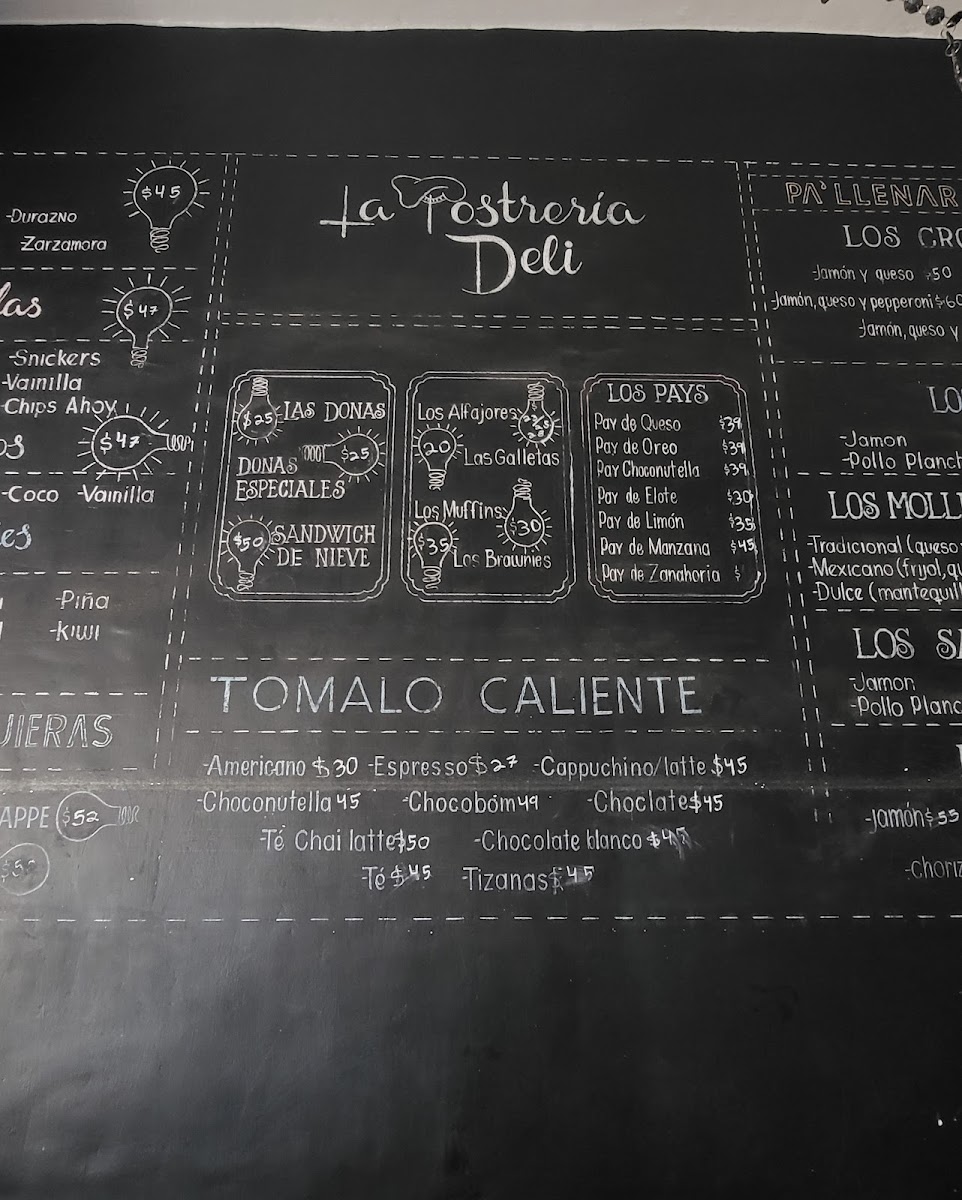 $45
-Durazno
Zarzamora
las
$47
-Snickers
-Vainilla
-Chips Ahoy
os
$47
-Coco -Vainilla
es
-Piña
-Kiwi
UIERAS
APPE $52
La Postrería
Deli
$25 LAS DONAS
DONAS $25
ESPECIALES
$50 SANDWICH
DE NIEVE
Los Alfajores
20 Las Galletas
Los Muffins $30
$35 Los Brawnies
LOS PAYS
Pay de Queso $39
Pay de Oreo $39
Pay Choconutella $39
Pay de Elote $30
Pay de Limón $35
Pay de Manzana $45
Pay de Zanahoria $
TOMALO CALIENTE
-Americano $30 -Espresso $27 -Cappuchino/latte $45
-Choconutella 45 -Chocobom 49 -Choclate $45
-Té Chai latte $50 -Chocolate blanco
-Té $45 Tizanas $45
PA' LLENAR
LOS CRO
-Jamón y queso $50
-Jamón, queso y pepperoni $60
-Jamón, queso y
LO
-Jamon
-Pollo Planch
LOS MOLL
-Tradicional (queso
-Mexicano (frijol, qu
-Dulce (mantequill
LOS SA
-Jamon
-Pollo Planc
-Jamón $55
-choriz